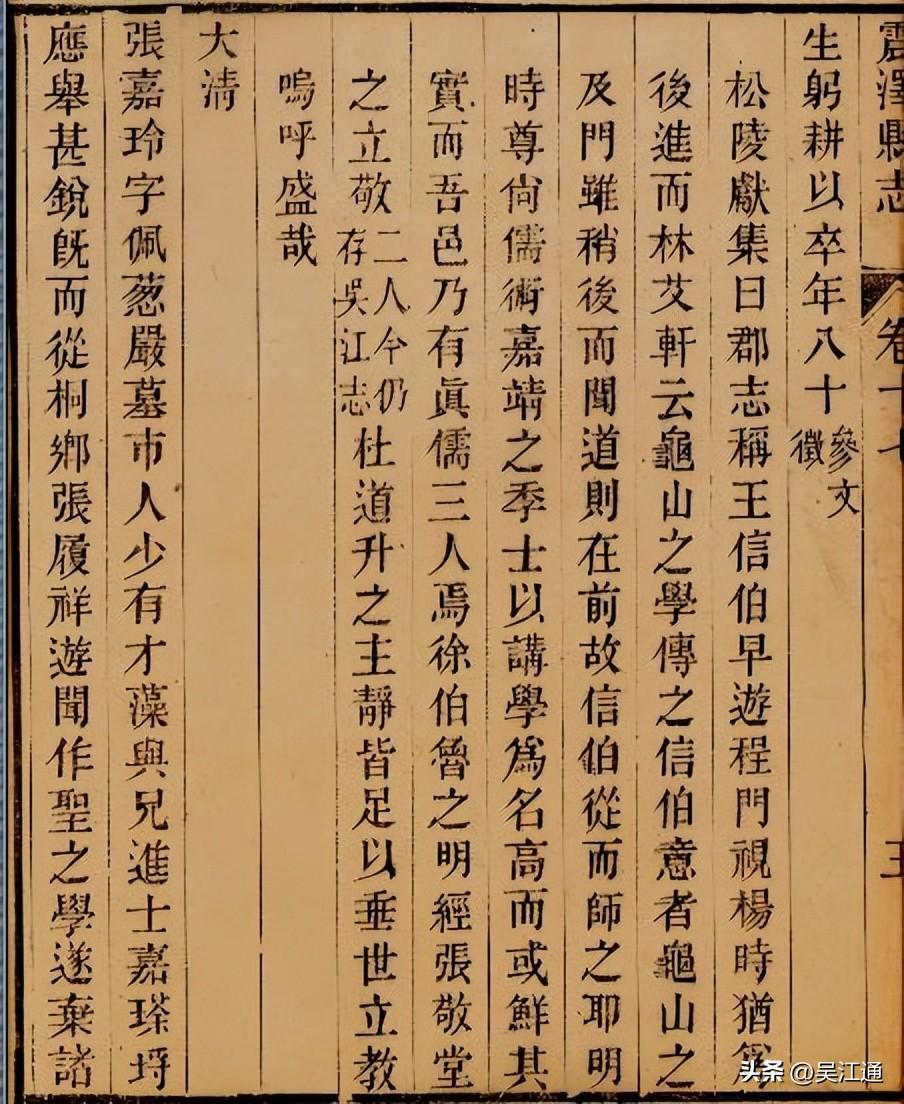 震澤縣志 卷十七
生躬耕以卒年八十參文徵
松陵獻集曰郡志稱王信伯早遊程門視楊時猶爲
後進而林艾軒云龜山之學傳之信伯意者龜山之
及門雖稍後而聞道則在前故信伯從而師之耶明
時尊尙儒術嘉靖之季士以講學爲名高而或鮮其
實而吾邑乃有眞儒三人焉徐伯魯之明經張敬堂
之立敬二人今仍存吳江志杜道升之主靜皆足以垂世立教
嗚呼盛哉
大淸
張嘉玲字佩葱嚴墓市人少有才藻與兄進士嘉瑹埒
應舉甚銳旣而從桐鄉張履祥遊聞作聖之學遂棄諸
头条 @吴江通